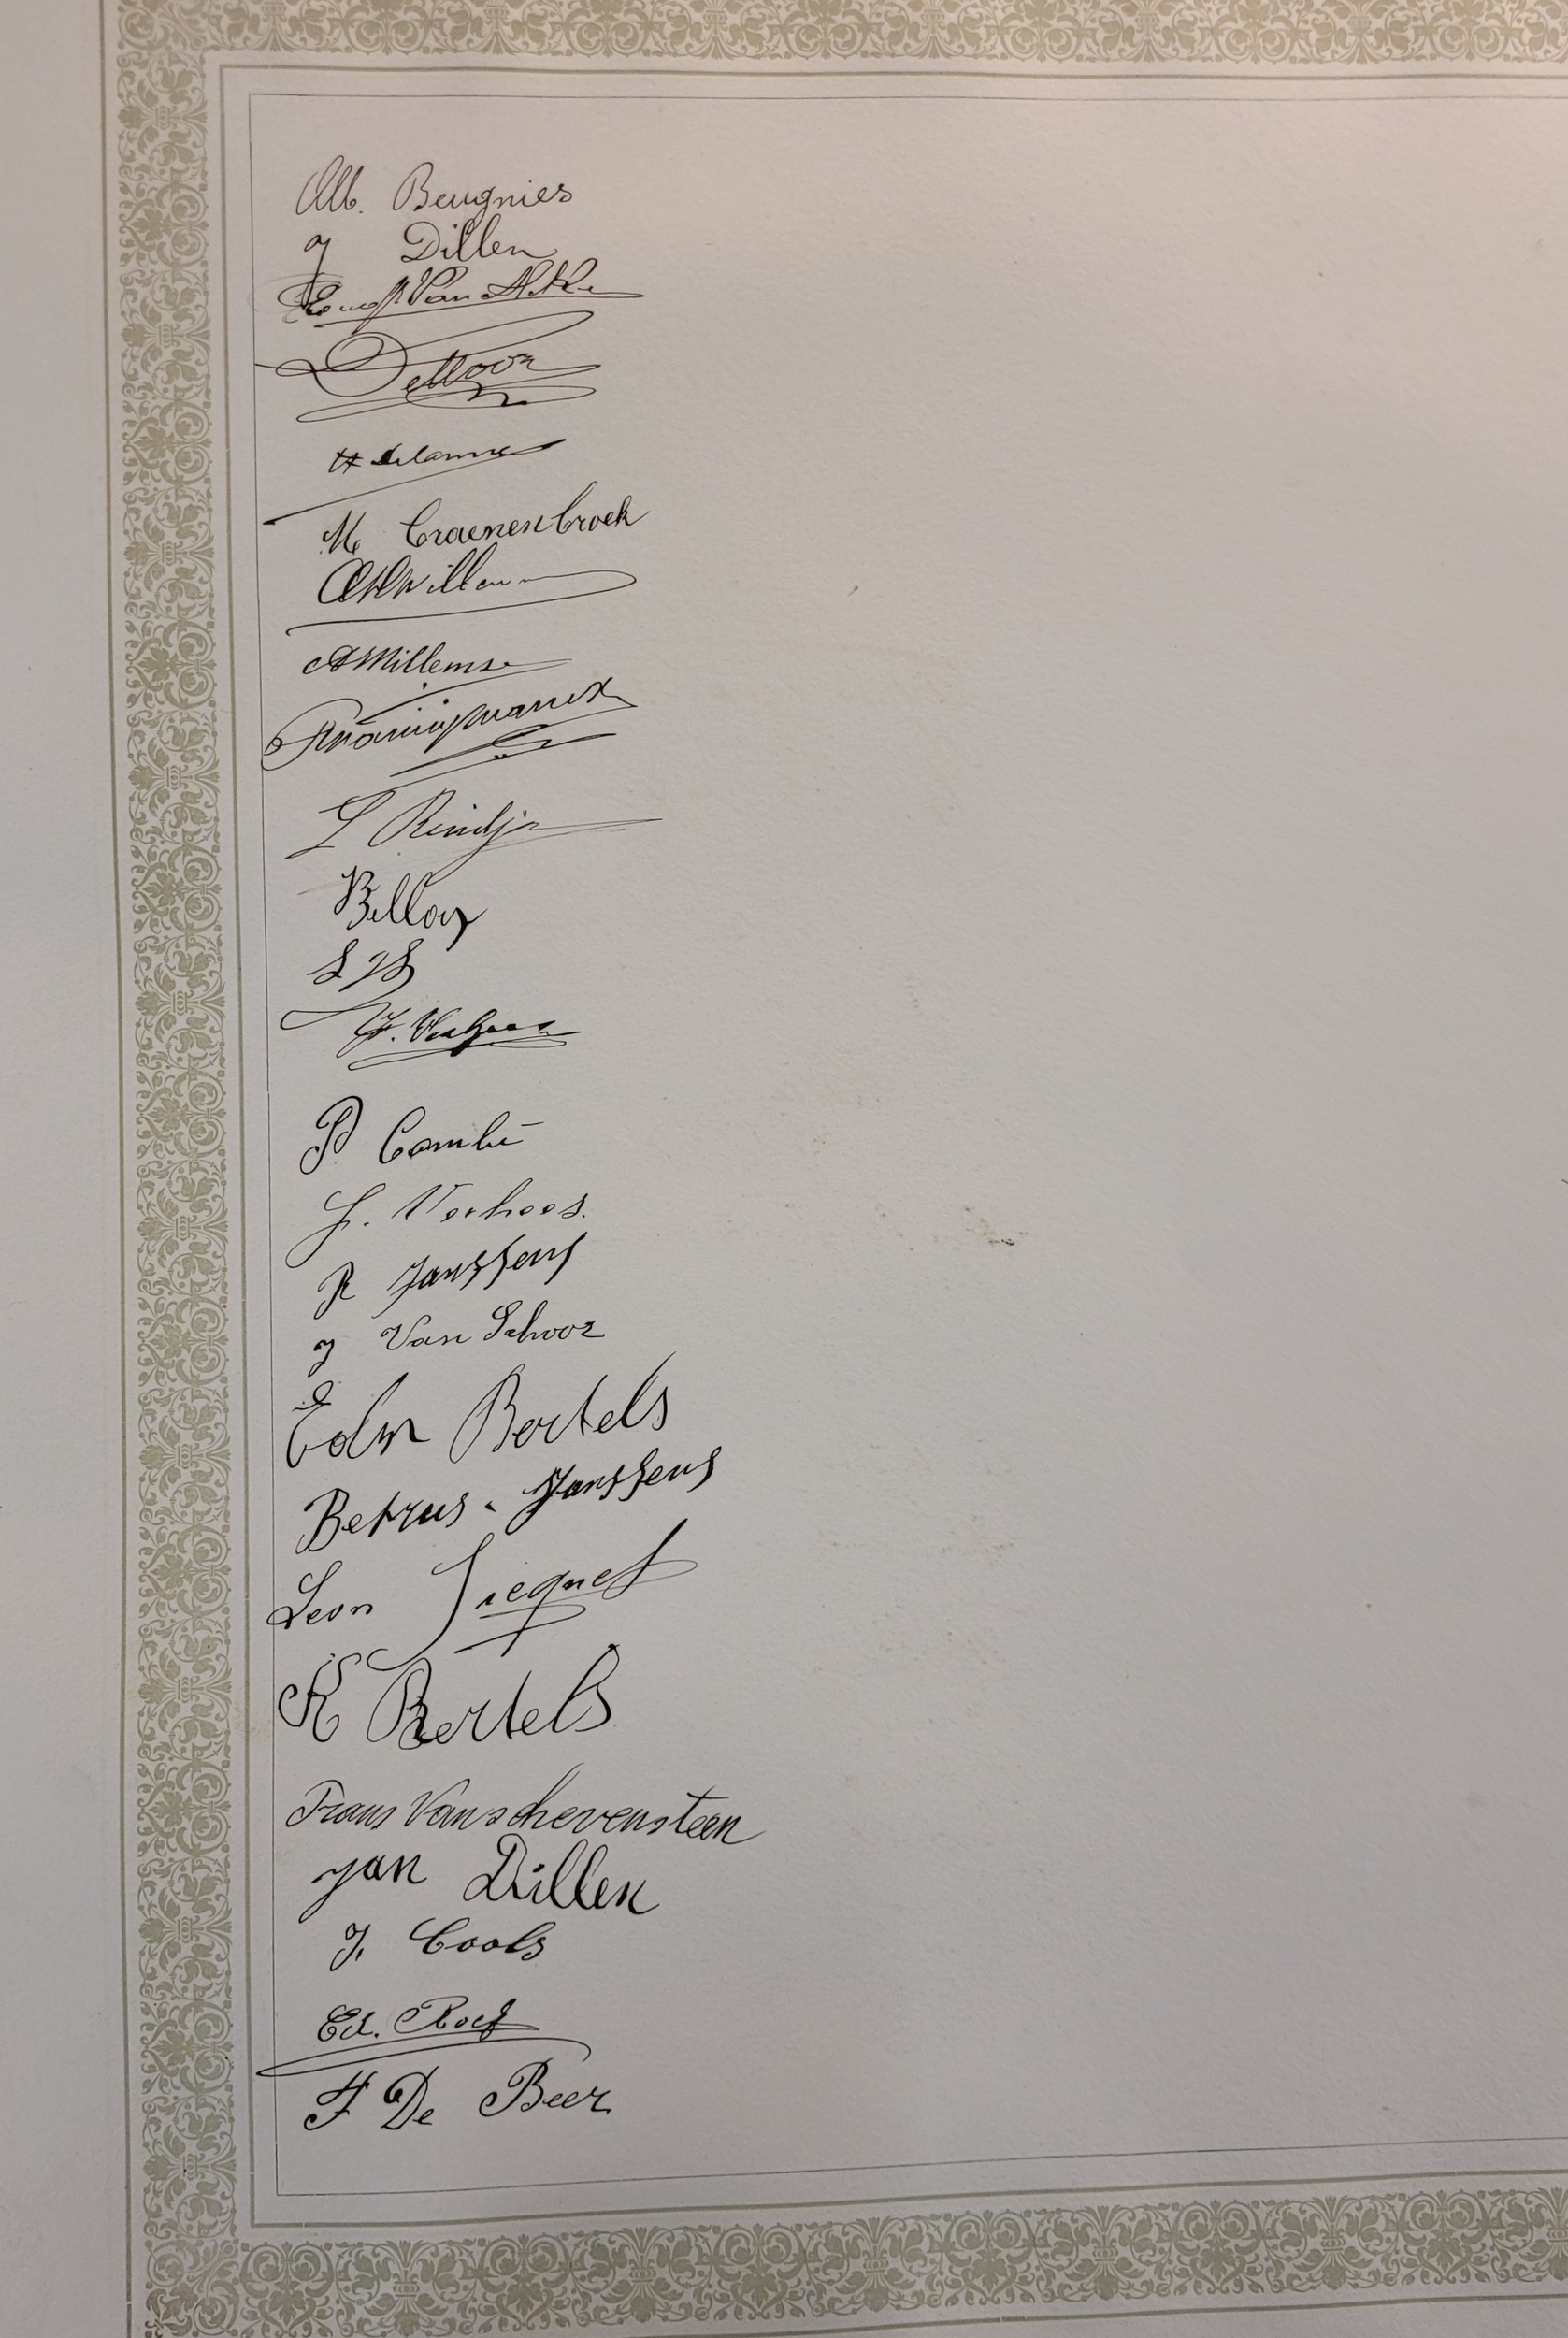 Alb. Beugnies
J Dillen
Van
Dettoor
H Delanne
M Craenenbroek
Willem
A Willems
L Rindj
Belloy
J. Verhees
P Cambi
J. Verhees.
R Janssens
J Van Schoor
Edm Bertels
Betrus. Janssens
Leon Jicquet
R Bertels
Frans Vanschevensteen
Jan Dillen
J. Cools
Ed. Roef
F De Beer